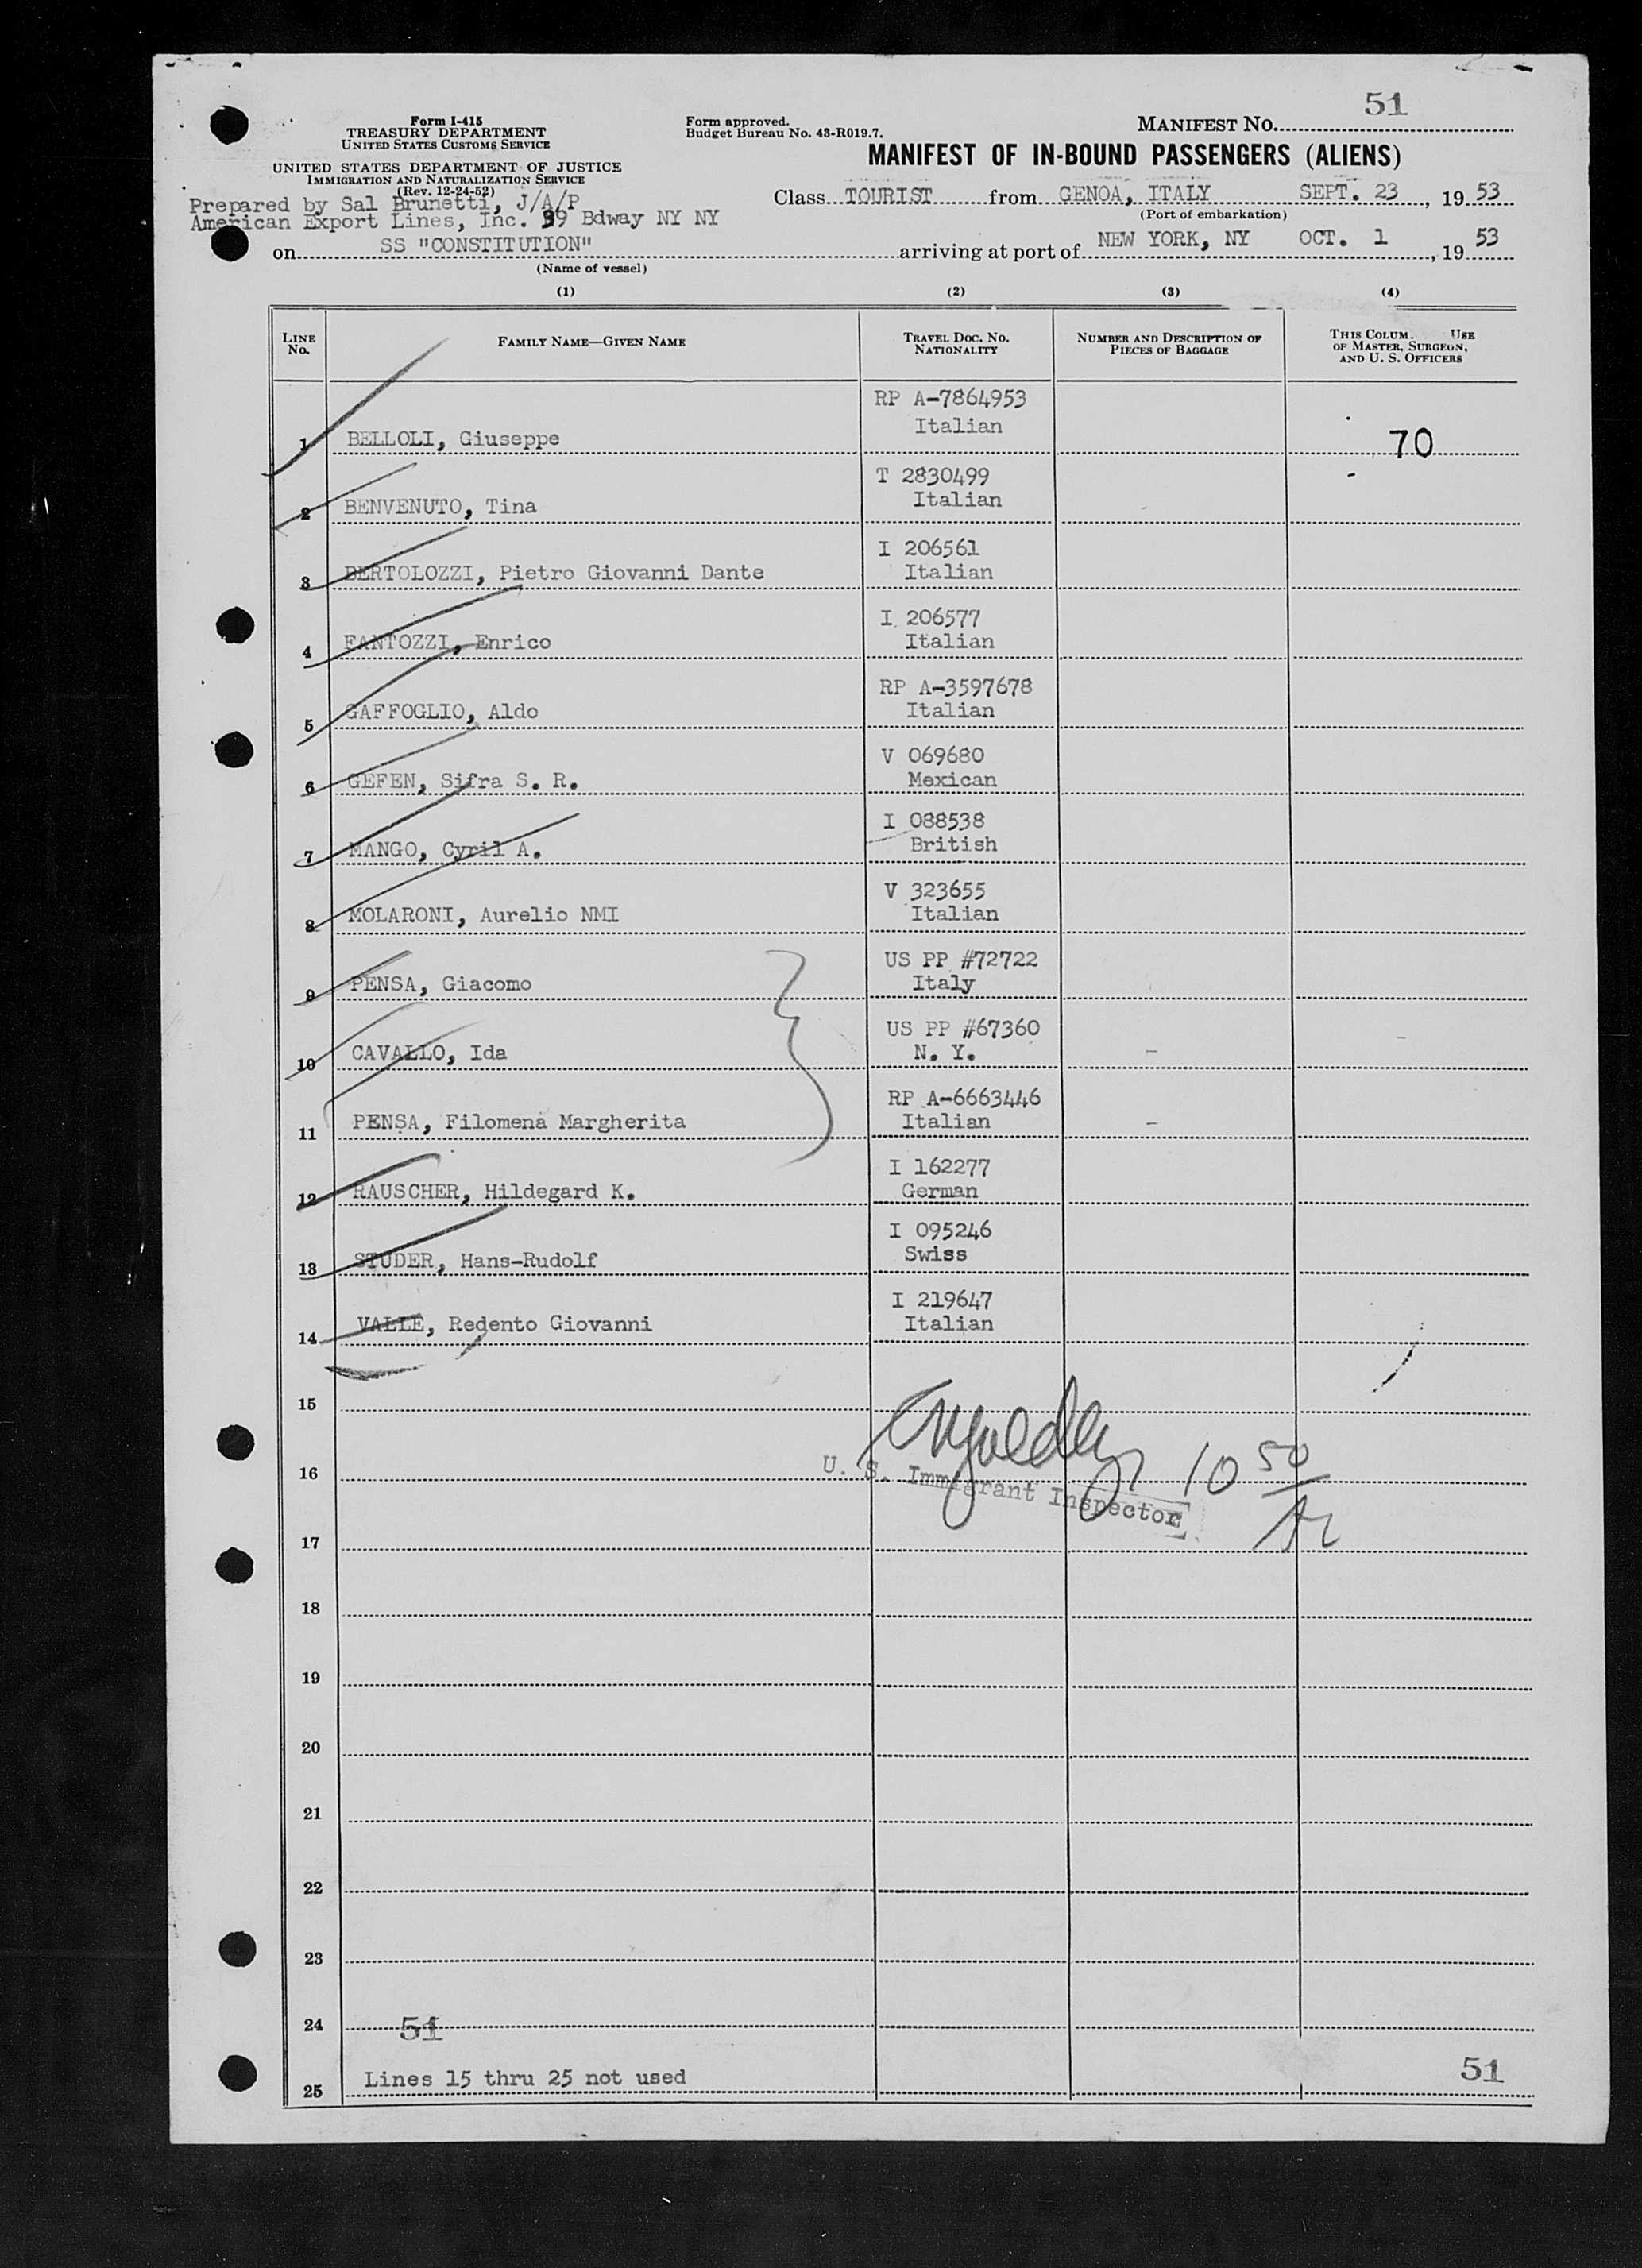 51
Form I-415
TREASURY DEPARTMENT
UNITED STATES CUSTOMS SERVICE
UNITED STATES DEPARTMENT OF JUSTICE
IMMIGRATION AND NATURALIZATION SERVICE
(Rev. 12-24-52)
Form approved.
Budget Bureau No. 43-R019.7.
MANIFEST NO.
MANIFEST OF IN-BOUND PASSENGERS (ALIENS)
Prepared by Sal Brunetti, J/A/P
American Export Lines, Inc. 39 Bdway NY NY
Class TOURIST from GENOA, ITALY SEPT. 23, 1953
(Port of embarkation)
on SS "CONSTITUTION" arriving at port of NEW YORK, NY OCT. 1, 1953
(Name of vessel)
(1) (2) (3) (4)
LINE No.
FAMILY NAME—GIVEN NAME
TRAVEL DOC. NO. NATIONALITY
NUMBER AND DESCRIPTION OF PIECES OF BAGGAGE
THIS COLUM. USE OF MASTER, SURGEON, AND U. S. OFFICERS
RP A-7864953
1 BELLOLI, Giuseppe Italian 70
T 2830499
2 BENVENUTO, Tina Italian
I 206561
3 BERTOLOZZI, Pietro Giovanni Dante Italian
I 206577
4 FANTOZZI, Enrico Italian
RP A-3597678
5 GAFFOGLIO, Aldo Italian
V 069680
6 GEFEN, Sifra S. R. Mexican
I 088538
7 MANGO, Cyril A. British
V 323655
8 MOLARONI, Aurelio NMI Italian
US PP #72722
9 PENSA, Giacomo Italy
US PP #67360
10 CAVALLO, Ida N. Y.
RP A-6663446
11 PENSA, Filomena Margherita Italian
I 162277
12 RAUSCHER, Hildegard K. German
I 095246
13 STUDER, Hans-Rudolf Swiss
I 219647
14 VALLE, Redento Giovanni Italian
15
16 U. S. Immigrant Inspector 10 50
17
18
19
20
21
22
23
24 51
25 Lines 15 thru 25 not used 51